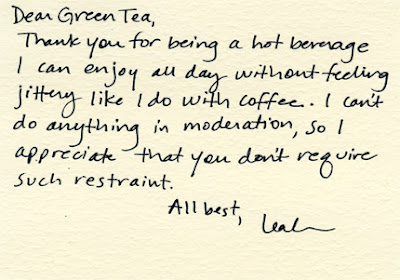 Dear Green Tea,
Thank you for being a hot beverage
I can enjoy all day without feeling
jittery like I do with coffee. I can't
do anything in moderation, so I
appreciate that you don't require
such restraint.
All best,
Leah